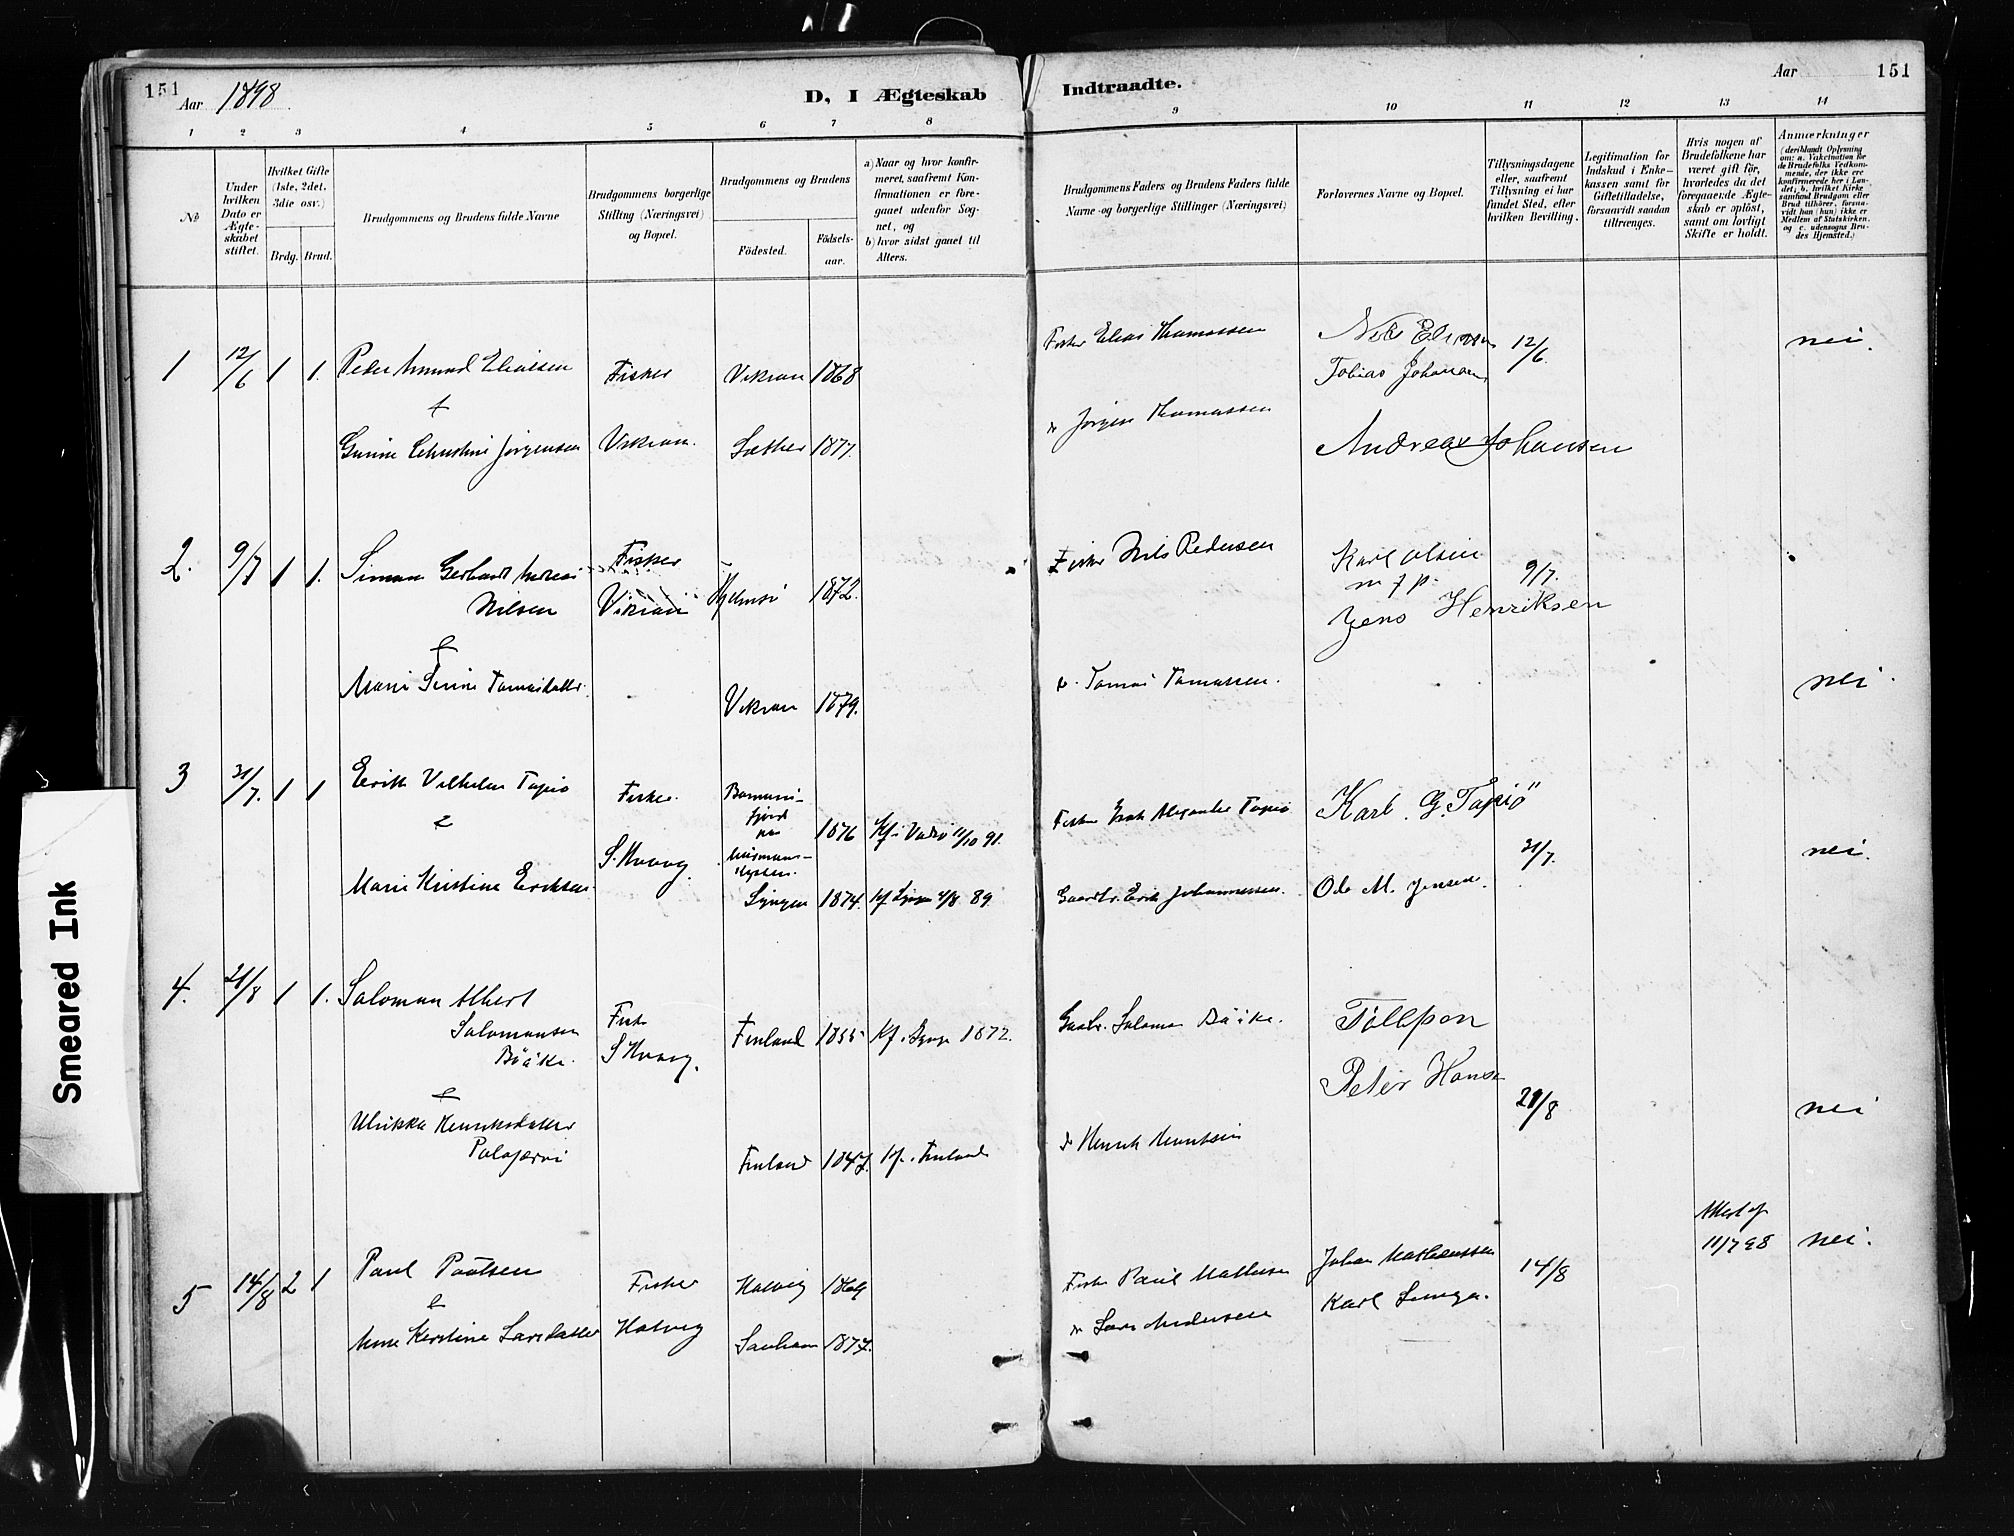 151
Aar 1898.
D, I Ægteskab
Indtraadte.
Aar
151
1 2 3 4 5 6 7 8 9 10 11 12 13 14
No
Under hvilken Dato er Ægteskabet stiftet.
Hvilket Gifte (1ste, 2det, 3die osv.)
Brdg. Brud.
Brudgommens og Brudens fulde Navne
Brudgommens borgerlige Stilling (Næringsvei) og Bopæl.
Brudgommens og Brudens
Födested.
Födsels-aar.
a) Naar og hvor konfirmeret, saafremt Konfirmationen er foregaaet udenfor Sognet, og
b) hvor sidst gaaet til Alters.
Brudgommens Faders og Brudens Faders fulde Navne og borgerlige Stillinger (Næringsvei)
Forlovernes Navne og Bopæl.
Tillysningsdagene eller, saafremt Tillysning ei har fundet Sted, efter hvilken Bevilling.
Legitimation for Indskud i Enkekassen samt for Giftetilladelse, forsaavidt saadan tiltrænges.
Hvis nogen af Brudefolkene har været gift för, hvorledes da det foregaaende Ægteskab er oplöst, samt om lovligt Skifte er holdt.
Anmærkninger (deriblandt Oplysning om: a. Vakcination for de Brudefolks Vedkommende, der ikke ere konfirmerede her i Landet; b. hvilket Kirkesamfund Brudgom eller Brud tilhörer, forsaavidt han (hun) ikke er Medlem af Statskirken, og c. udensogns Brudes Hjemsted.)
1 12/6 1 1. Peder Amund Eliasen Fisker Vikran 1868 Fisker Elias Thomassen
Tobias Johansen 12/6 nei.
&
Gurine Christine Jörgensen Vikran. Sather 1877. Jörgen Thomassen Andreas Johansen
2. 9/7 1 1. Simon Gerhard Andreas Nilsen Fisker Vikran Hjelmsö 1872. Fisker Nils Pedersen Karl Olsen
m f p. 9/7.
Jens Henriksen
&
Marie Sirine Tomasdatter. Vikran 1879. Tomas Tomassen. nei.
3 31/7. 1 1 Erik Vilhelm Tapio Fisker. S. Kvavg. 1876 Kf. i Vadsö 11/10 91. Fisker Isak Alexander Tapio Karl. G. Tapiö 31/7. nei.
&
Marie Kristine Eriksen. Lyngen 1874. Kf Lyngen 4/8 89 Gaardbr. Erik Johannessen. Ole M. Jensen.
4. 21/8 1 1. Salomon Albert Salomonsen Bååke. Fisker S Kvavg. Finland 1855 Kf. Lyngen 1872. Gaabr. Salomon Bååke. Töllefsen
Peter Hansen 21/8 nei
&
Ulrikka Henriksdatter Palojærvi Finland 1847. Kf. Finland Henrik
5 14/8 2 1 Paul Paulsen Fisker Havvig 1869 Fisker Paul Mathisen Johan Mathiassen 14/8 11/7 98 nei.
&
Anne Kirstine Larsdatter Havvig 1877. Lars Andersen Karl
Smeared Ink